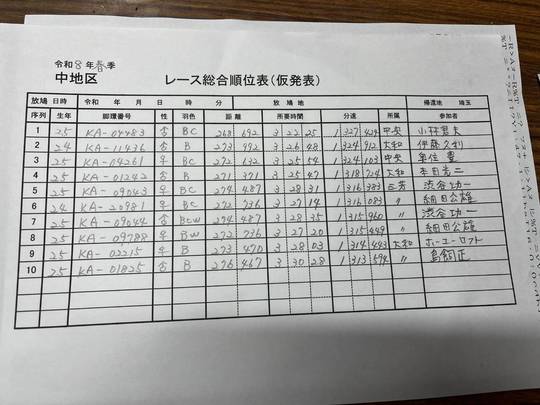 令和8年春季
中地区 レース総合順位表(仮発表)
放鳩 日時 令和 年 月 日 時 分 放鳩地 帰還地 埼玉
序列 生年 脚環番号 性 羽色 距離 所要時間 分速 所属 参加者
1 25 KA-04483 BC 268 692 3 22 25 1 327 424 中央
2 24 KA-11436 B 273 992 3 26 48 1 324 912 大和 伊藤久利
3 25 KA-04261 BC 272 632 3 25 54 1 324 103 中央
4 25 KA-01242 B 271 371 3 25 47 1 318 724 大和 本田浩二
5 25 KA-09043 BC 274 487 3 28 31 1 316 383 三芳 渋谷功一
6 24 KA-20981 BC 272 736 3 27 14 1 316 083 〃 細田公雄
7 25 KA-09044 BCW 274 487 3 28 35 1 315 960 〃 渋谷功一
8 25 KA-09788 BW 272 736 3 27 20 1 315 449 〃 細田公雄
9 25 KA-02215 B 273 470 3 28 03 1 314 443 大和 ホーユーロフト
10 25 KA-01825 B 276 467 3 30 28 1 313 594 〃 鳥飼正